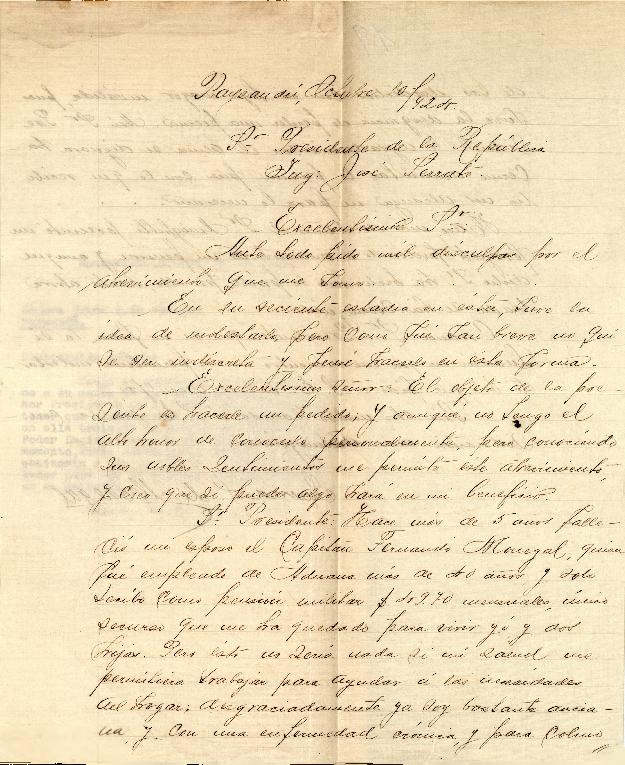 Paysandú, Octubre 10/924.
Sr. Presidente de la República
Ing: José Serrato.
Excelentísimo Sr.
Ante todo pido mil disculpas por el
atrevimiento que me tomo.
En su reciente estadía en ésta tuve la
idea de molestarlo, pero como fué tan breve no qui
se ser indiscreta y pensé hacerlo en esta forma.
Excelentísimo señor: El objeto de la pre-
sente es hacerle un pedido; y aunque no tengo el
alto honor de conocerlo personalmente, pero conociendo
sus nobles sentimientos me permito éste atrevimiento
y creo que si puede algo hará en mi beneficio
Sr. Presidente: Hace más de 5 años falle-
ció mi esposo el Capitán Fernando Monegal, quien
fué empleado de Aduana más de 40 años y solo
recibo como pensión militar $ 9.70 mensuales, único
recurso que me ha quedado para vivir yó y dos
hijas. Pero ésto no sería nada si mi salud me
permitiera trabajar para ayudar á las necesidades
del hogar; desgraciadamente ya soy bastante ancia-
na, y con una enfermedad crónica, y para colmo